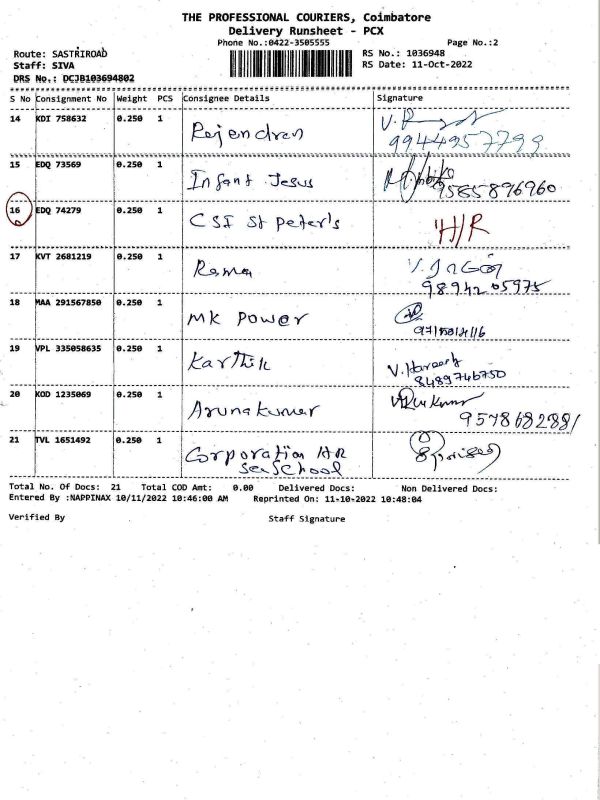 THE PROFESSIONAL COURIERS, Coimbatore
Delivery Runsheet - PCX
Phone No.:0422-3505555 Page No.:2
Route: SASTRIROAD RS No.: 1036948
Staff: SIVA RS Date: 11-Oct-2022
DRS No.: DCJB103694802
S No Consignment No Weight PCS Consignee Details Signature
14 KDI 758632 0.250 1 Rajendran
9944957799
15 EDQ 73569 0.250 1 Infant Jesus
9585896960
16 EDQ 74279 0.250 1 CSI St peter's H/R
17 KVT 2681219 0.250 1 Rama
98942 05975
18 MAA 291567850 0.250 1 MK Power
19 VPL 335058635 0.250 1 Karthik V. Hareesh
8489746750
20 KOD 1235069 0.250 1 Arunakumar
9578682881
21 TVL 1651492 0.250 1 Corporation HR
Sec School
Total No. Of Docs: 21 Total COD Amt: 0.00 Delivered Docs: Non Delivered Docs:
Entered By :NAPPINAX 10/11/2022 10:46:00 AM Reprinted On: 11-10-2022 10:48:04
Verified By Staff Signature